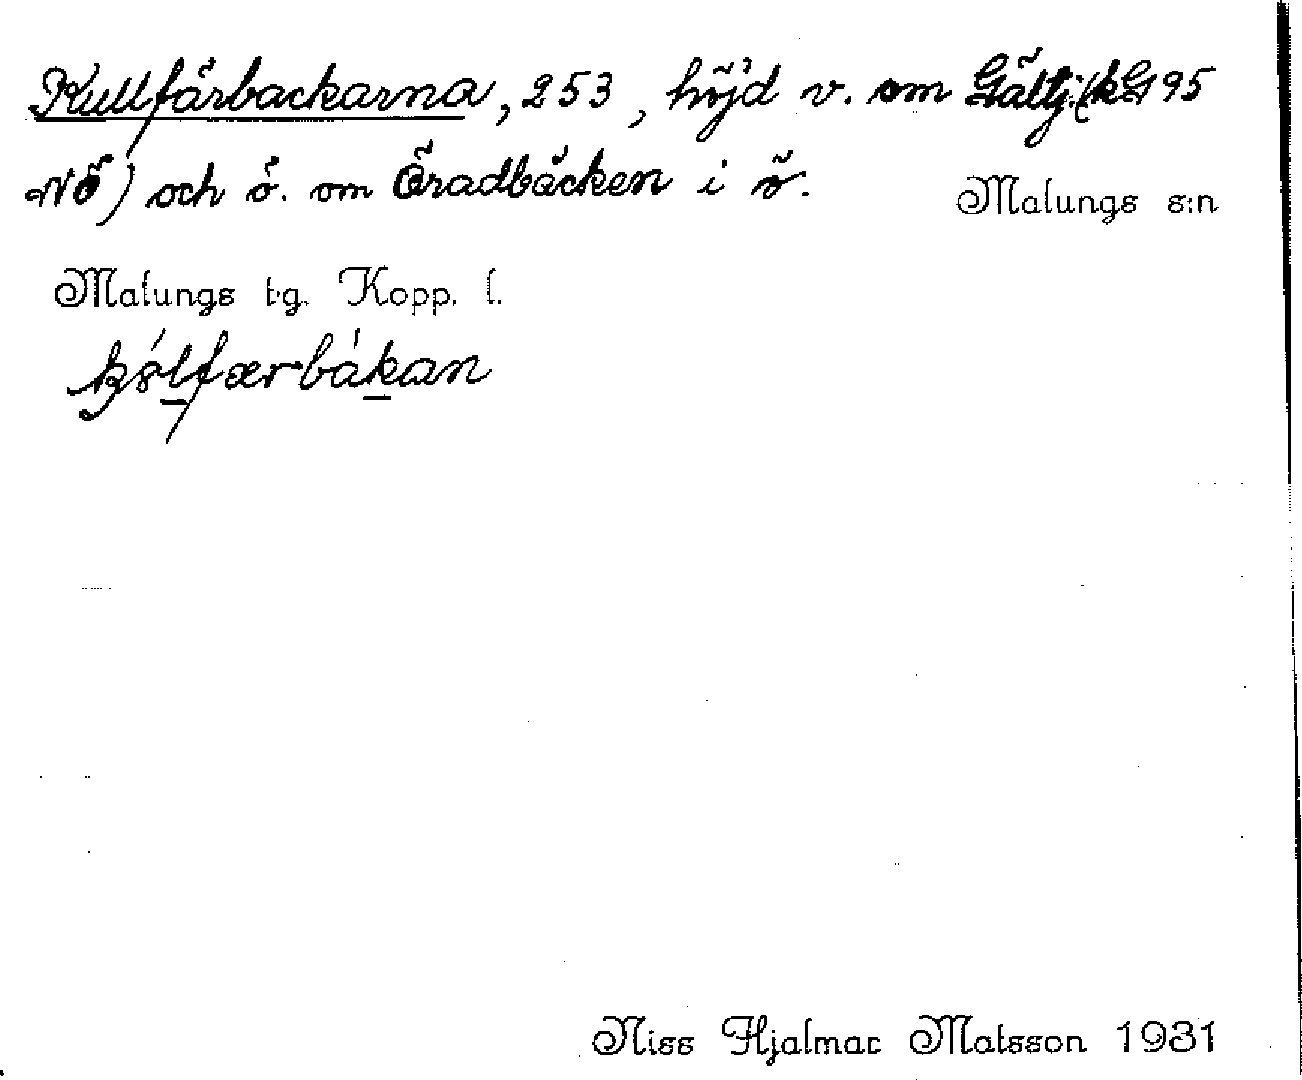 Kullfärbackarna, 253, höjd v. om Gältj.(kG195
NÖ) och ö. om Öradbäcken i ö. Malungs s:n
Malungs tg. Kopp. l.
Niss Hjalmar Matsson 1931